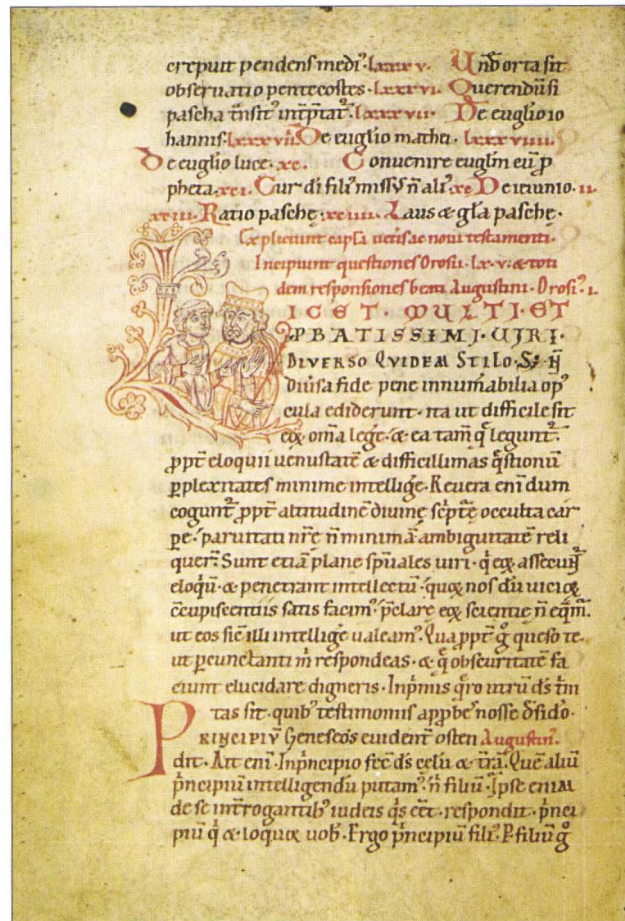 erepuit pendens medi᷒·lxxx v. Un̄ orta sit
obseruatio pentecostes·lxxx vi. Querendū si
pascha t̄nsit᷒ int̄p̄tat᷒·lxxx vii. De euglio io
hannis·lxxx vii. De euglio mathei·lxxx viiii.
De euglio luce·xc. Convenire euglm̄ eū p̄
pheta·xci. Cur di fili᷒ missus n̄ ali᷒·xc De ieiunio·ii
xciii·Ratio pasche·xciiii·Laus & gl̄a pasche·
Expliciunt capl̄a ueteris ac noui testamenti·
Incipiunt questiones Orosii·lx·v·& toti
dem responsiones beati Augustini·Orosi᷒·i
LICET·MULTI·ET
PBATISSIMI·UIRI·
DIVERSO QVIDEM STILO·S; n̄
diūsa fide pene innum̄abilia op᷒
cula ediderunt·ita ut difficile sit
eoꝝ om̄a legē·& ea tam̄ q̄ legunt᷒·
ꝓpt̄ eloquii uenustatē & difficillimas q̄stionū
ꝑplexitates minime intelligē·Reuera eni dum
cogunt᷒ ꝓpt̄ altitudinē diuinę sc̄ptę occulta car
pe·paruitati nr̄ę n̄ minimā ambiguitatē reli
quer̄·Sunt etiā plane sp̄uales uiri·q̄ eoꝝ assecuti
eloq̄ū·& penetrant intellectū·quoꝝ nos dū uicioꝝ
c̄cupiscentiis satis facim᷒·p̄clare eoꝝ scientię n̄ eq̄m᷒·
ut eos sic̄ illi intelligē ualeam᷒·Qua ꝓpt̄ g̊ queso te·
ut ꝑcunctanti m̄ respondeas·& q̄ obscuritatē fa
ciunt elucidare digneris·Inp̄mis q̄ro utrū ds̄ t̄ni
tas sit·quib᷒ testimoniis app̄be᷒ nosse d̄sido·
PRINCIPIV̄ Geneseos euident̄ osten Augustin᷒·
dit·Ait eni·Inp̄ncipio fec̄ ds̄ celū & t̄rā·Quē aliū
p̄ncipiū intelligendū putam᷒·n̄ filiū·Ipse enim
de se int̄rogantib᷒ iudeis q̄s eēt·respondit·p̄nci
piū q̄ & loquoꝝ uob᷒·Ergo p̄ncipiū fili᷒·P filiū g̊